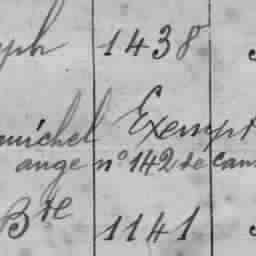 ph 1438
michel Exempt
ange n° 142 de can
Bte 1141